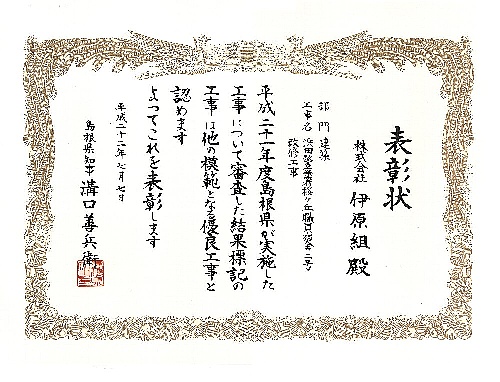 表彰状
株式会社 伊原組 殿
部門 建築
工事名 浜田警察署桜ヶ丘職員宿舎二号
改修工事
平成二十一年度島根県が実施した
工事について審査した結果標記の
工事は他の模範となる優良工事と
認めます
よってこれを表彰します
平成二十二年七月七日
島根県知事 溝口善兵衛